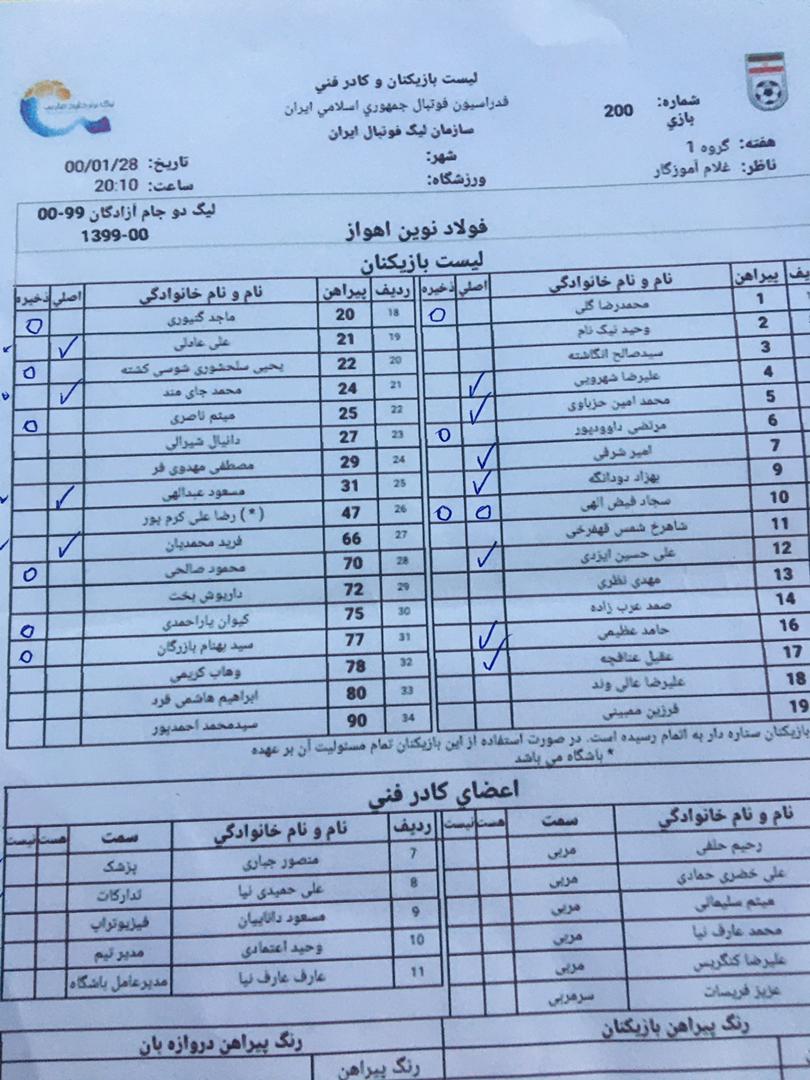 لیست بازیکنان و کادر فني
فدراسیون فوتبال جمهوري اسلامي ایران
سازمان لیگ فوتبال ایران
شماره بازي: 200
هفته: گروه 1
ناظر: غلام آموزگار
شهر:
ورزشگاه:
تاریخ: 00/01/28
ساعت: 20:10
لیگ دو جام آزادگان 99-00
1399-00
فولاد نوین اهواز
لیست بازیکنان
پیراهن نام و نام خانوادگي اصلي ذخیره ردیف پیراهن نام و نام خانوادگي اصلي ذخیره
1 محمدرضا گلی O 18 20 ماجد گنیوری O
2 وحید نیک نام 19 21 علی عادلی ✓
3 سیدصالح انگاشته 20 22 یحیی سلحشوری شوسی کشته O
4 علیرضا شهرویی ✓ 21 24 محمد جای مند ✓
5 محمد امین حزباوی ✓ 22 25 میثم ناصری O
6 مرتضی داوودپور O 23 27 دانیال شیرالی
7 امیر شرفی ✓ 24 29 مصطفی مهدوی فر
9 بهزاد دودانگه ✓ 25 31 مسعود عبدالهی ✓
10 سجاد فیض الهی O O 26 47 (*) رضا علی کرم پور
11 شاهرخ شمس قهفرخی 27 66 فرید محمدیان ✓
12 علی حسین ایزدی ✓ 28 70 محمود صالحی O
13 مهدی نظری 29 72 داریوش بخت
14 صمد عرب زاده 30 75 کیوان یاراحمدی O
16 حامد عظیمی ✓ 31 77 سید بهنام بازرگان O
17 عقیل عنافچه ✓ 32 78 وهاب کریمی
18 علیرضا عالی وند 33 80 ابراهیم هاشمی فرد
19 فرزین ممبینی 34 90 سیدمحمد احمدپور
بازیکنان ستاره دار به اتمام رسیده است. در صورت استفاده از این بازیکنان تمام مسئولیت آن بر عهده
باشگاه می باشد *
اعضاي کادر فني
نام و نام خانوادگي سمت هست نیست ردیف نام و نام خانوادگي سمت هست نیست
رحیم حلفی مربی 7 منصور جباری پزشک
علی خضری حمادی مربی 8 علی حمیدی نیا تدارکات
میثم سلیمانی مربی 9 مسعود داناییان فیزیوتراپ
محمد عارف نیا مربی 10 وحید اعتمادی مدیر تیم
علیرضا کنگریس مربی 11 عارف عارف نیا مدیرعامل باشگاه
عزیز فریسات سرمربی
رنگ پیراهن بازیکنان رنگ پیراهن دروازه بان
رنگ پیراهن